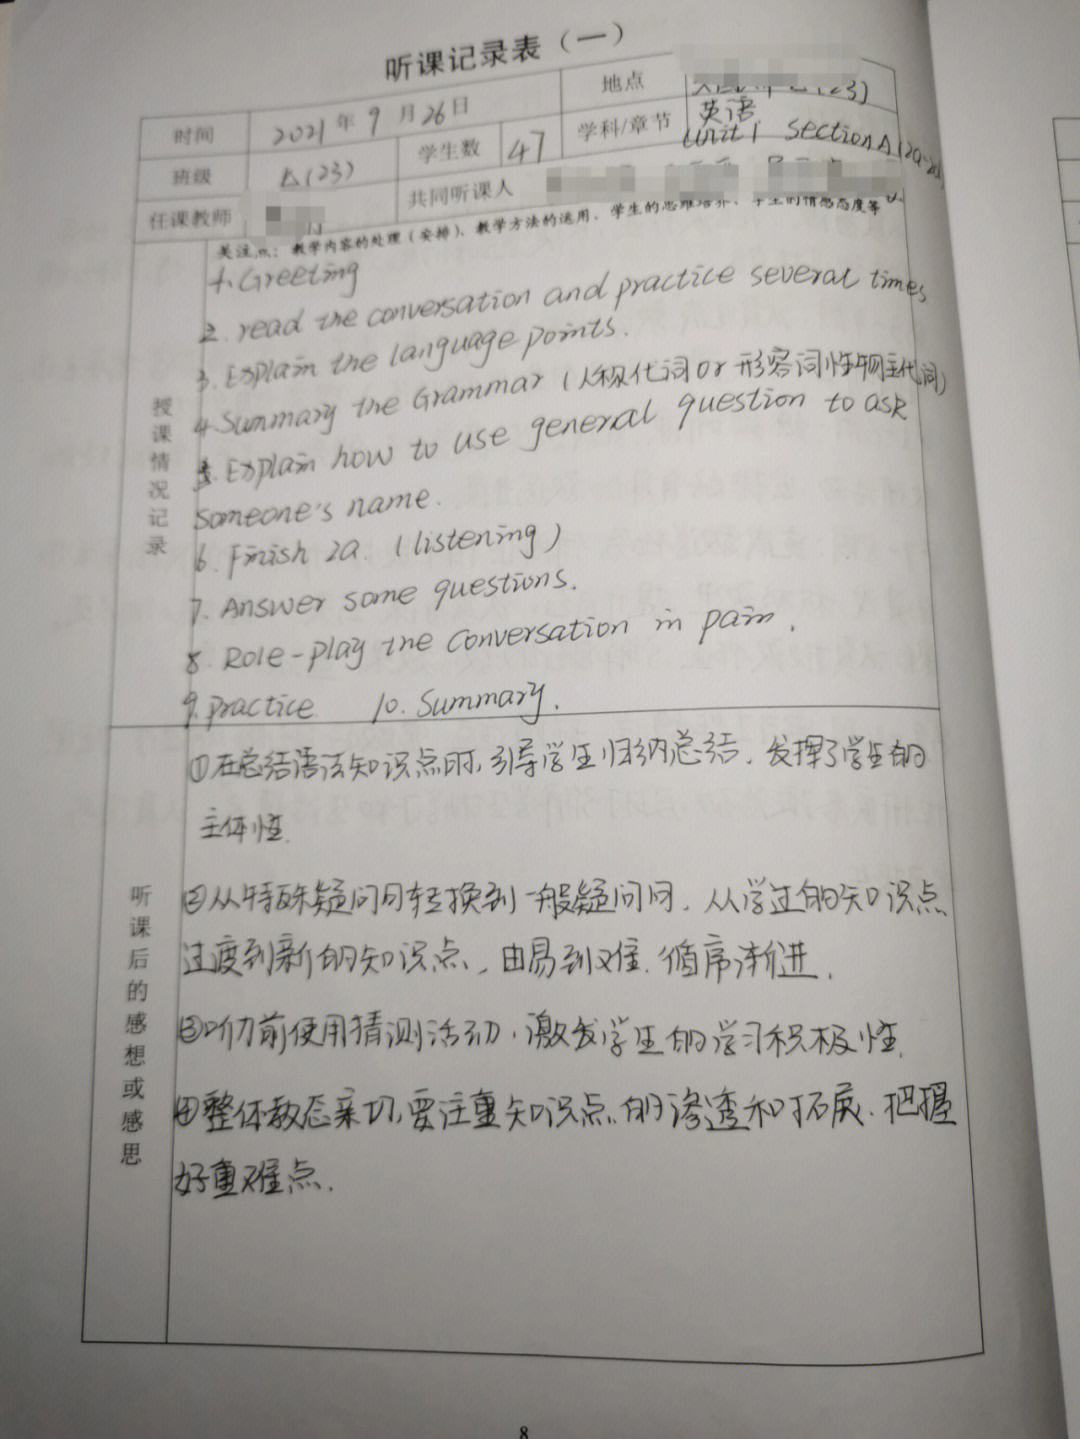 听课记录表（一）
时间 2021年9月26日 地点 (23)
班级 (23) 学生数 47 学科/章节 英语 Unit 1 Section A (2a-2d)
任课教师 共同听课人
关注点：教学内容的处理（安排）、教学方法的运用、学生的思维培养、学生的情感态度等
授课情况记录
1. Greeting
2. read the conversation and practice several times
3. Explain the language points.
4. Summary the Grammar (人称代词 or 形容词性物主代词)
5. Explain how to use general question to ask
someone's name.
6. Finish 2a. (listening)
7. Answer some questions.
8. Role-play the conversation in pair.
9. practice 10. Summary.
听课后的感想或感思
①在总结语法知识点时，引导学生归纳总结，发挥了学生的
主体性.
②从特殊疑问句转换到一般疑问句，从学过的知识点
过度到新的知识点，由易到难.循序渐进.
③听力前使用猜测活动，激发学生的学习积极性.
④整体教态亲切，要注重知识点的渗透和拓展.把握
好重难点.
8